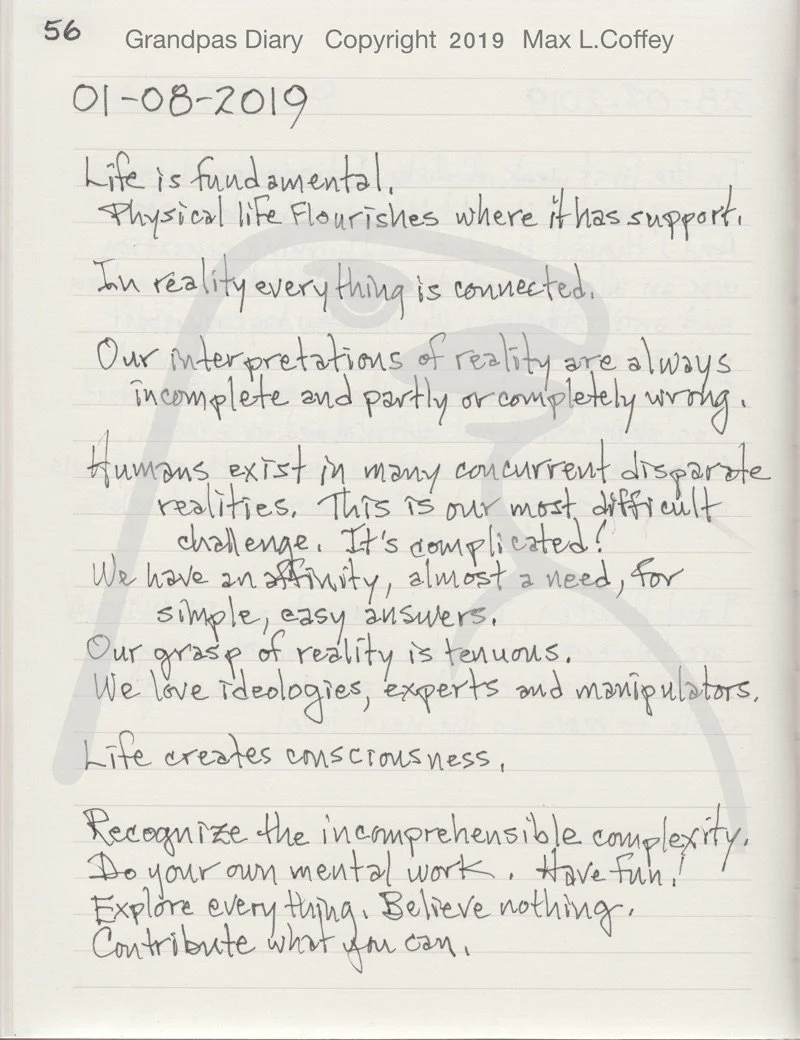 56
Grandpas Diary Copyright 2019 Max L.Coffey
01-08-2019
Life is fundamental.
Physical life flourishes where it has support.
In reality everything is connected.
Our interpretations of reality are always
incomplete and partly or completely wrong.
Humans exist in many concurrent disparate
realities. This is our most difficult
challenge. It's complicated!
We have an affinity, almost a need, for
simple, easy answers.
Our grasp of reality is tenuous.
We love ideologies, experts and manipulators.
Life creates consciousness.
Recognize the incomprehensible complexity.
Do your own mental work. Have fun!
Explore everything. Believe nothing.
Contribute what you can.